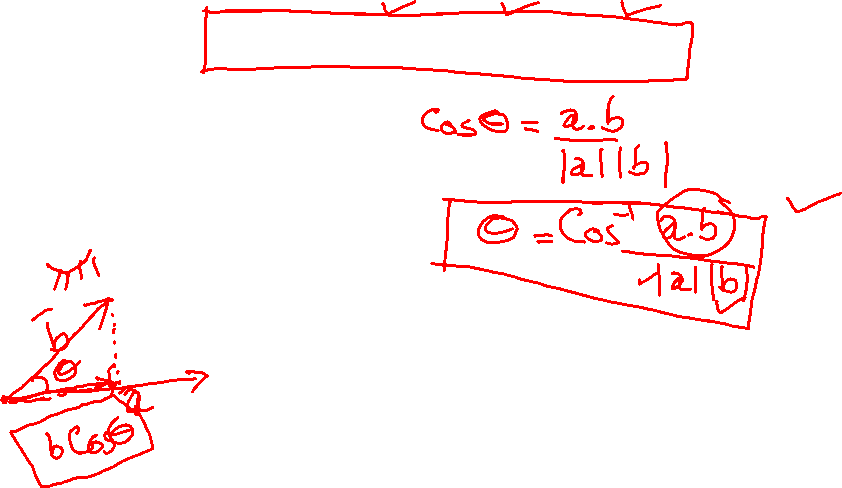 cosθ = a.b / |a||b|
θ = Cos⁻¹ a.b / |a||b|
b̄
θ
a
b Cosθ